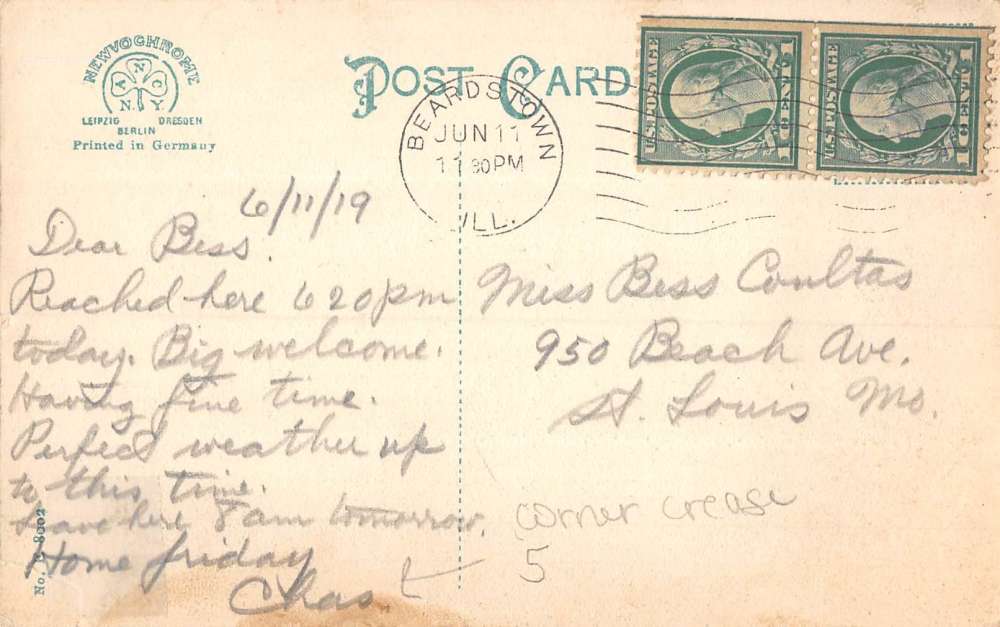 NEWVOGHROME
ANC
N.Y.
LEIPZIG DRESDEN
BERLIN
Printed in Germany
POST CARD
BEARDSTOWN
JUN 11
11 30 PM
ILL.
U.S. POSTAGE
1 CENT 1
U.S. POSTAGE
1 CENT 1
6/11/19
Dear Bess.
Reached here 6 20 pm
today. Big welcome.
Having fine time.
Perfect weather up
to this time.
Leave here 8 am tomorrow.
Home friday
Chas.
Miss Bess Coultas
950 Beach Ave.
St. Louis Mo.
corner crease
5
No. C-8002